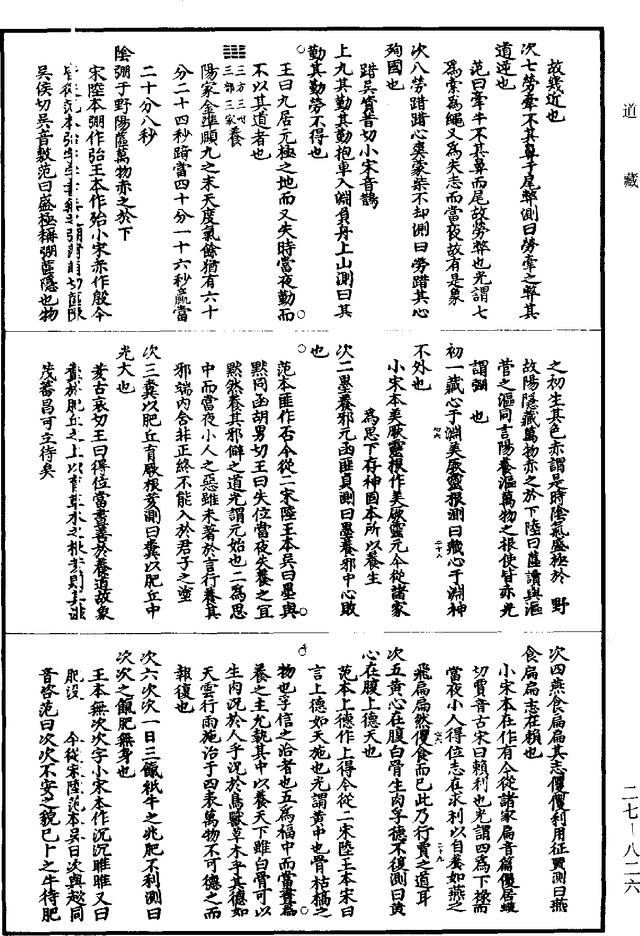 道藏
故幾近也
次七勞牽不其鼻于尾弊測曰勞牽之弊其
道逆也
范曰牽牛不其鼻而尾故勞弊也光謂七
為索為繩又為矢志而當夜故有是象
次八勞踖踖心爽蒙柴不却測曰勞踖其心
殉國也
踖吳資昔切小宋音鵲
上九其勤其勤抱車入淵負舟上山測曰其
勤其勤勞不得也
王曰九居亢極之地而又失時當夜勤而
不以其道者也
三方三州三部三家養
陽家金準頤九之末天度氣餘猶有六十
分二十四秒踦當四十分一十六秒贏當
二十分八秒
陰弸于野陽蓲萬物赤之於下
宋陸本弸作弘王本作殆小宋赤作殷今
吳侯切吳音敷范曰盛極稱弸蓲隱也物
之初生其色赤謂是時陰氣盛極於 野
故陽隱藏萬物赤之於下陸曰蓲讀與漚
菅之漚同言陽養漚萬物之根使皆赤光
謂弸 也
初一藏心于淵美厥靈根測曰藏心于淵神
不外也
小宋本美厥靈根作美厥靈元今從諸家
為思下存神固本所以養生
次二墨養邪元函匪貞測曰墨養邪中心敗
也
范本匪作否今從二宋陸王本吳曰墨與
默同函胡男切王曰失位當夜失養之宜
默然養其邪僻之道光謂元始也二為思
中而當夜小人之惡雖未著於言行養其
邪端內含非正終不能入於君子之塗
次三糞以肥丘育厥根荄測曰糞以肥丘中
光大也
荄古哀切王曰得位當晝善於養道故象
糞於肥丘之上以育草木之根荄則其滋
茂蕃昌可立待矣
次四燕食扁扁其志僾僾利用征賈測曰燕
食扁扁志在賴也
小宋本在作有今從諸家扁音篇僾居縛
切賈音古宋曰賴利也光謂四為下祿而
當夜小人得位志在求利以自養如燕之
飛扁扁然僾食而已此乃行賈之道耳
次五黃心在腹白骨生肉孚德不復測曰黃
心在腹上德天也
范本上德作上得今從二宋陸王本宋曰
言上德如天施也光謂黃中也骨枯槁之
物也孚信之洽者也五為福中而當晝為
養之主允執其中以養天下雖白骨可以
生肉況於人乎況於鳥獸草木乎其德如
天雲行雨施治于四表萬物不可德之而
報復也
次六次次一日三餼祇牛之兆肥不利測曰
次次之餼肥無身也
王本無次次字小宋本作沉沉雎雎又曰
肥沒 今從宋陸范本吳曰次與趑同
音咨范曰次次不安之貌已卜之牛待肥
二七—八二六